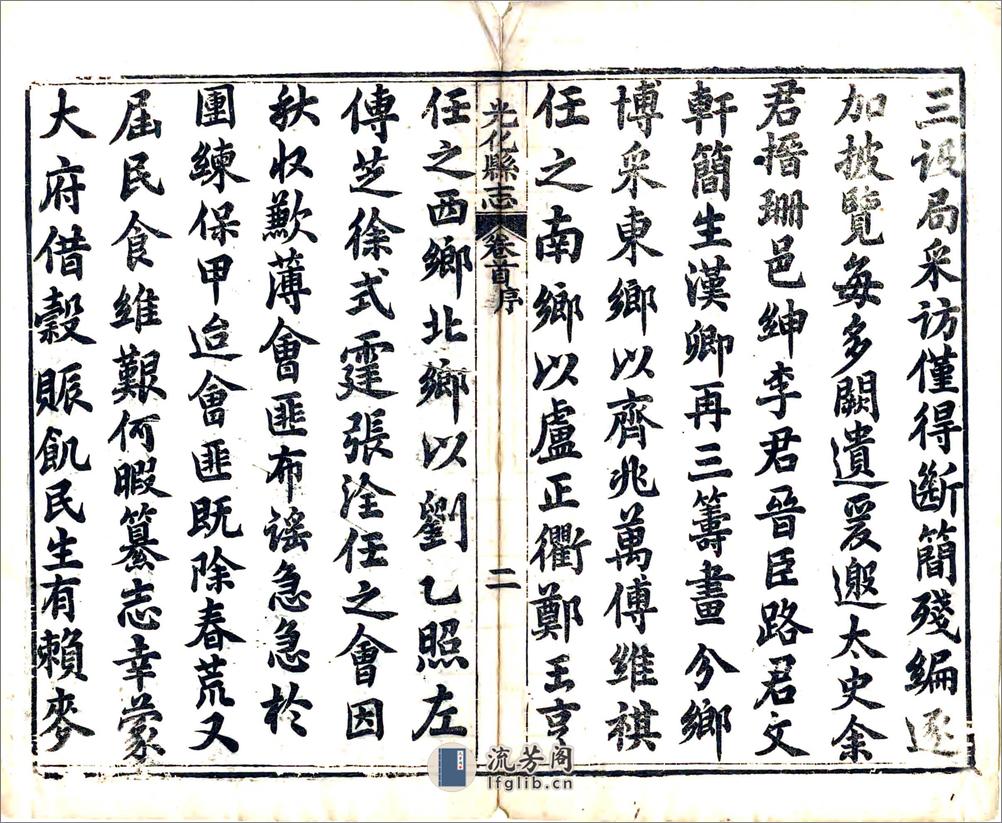 三設局采访僅得斷簡殘編逐
加披覽每多闕遺爰邀太史余
君搢珊邑紳李君晉臣路君文
軒簡生漢卿再三籌畫分鄉
博采東鄉以齊兆萬傅維祺
任之南鄉以盧正衢鄭玉亨
光化縣志 卷首序 二
任之西鄉北鄉以劉乙照左
傳芝徐式霆張淦任之會因
秋收歉薄會匪布谣急急於
團練保甲迨會匪既除春荒又
屆民食維艱何暇纂志幸蒙
大府借穀賑飢民生有賴麥
流芳阁
lfglib.cn